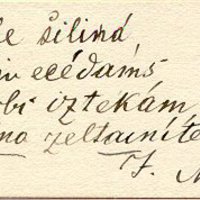 le šilinā
ecēdams
bi iztekám
no zeltainíte
J.